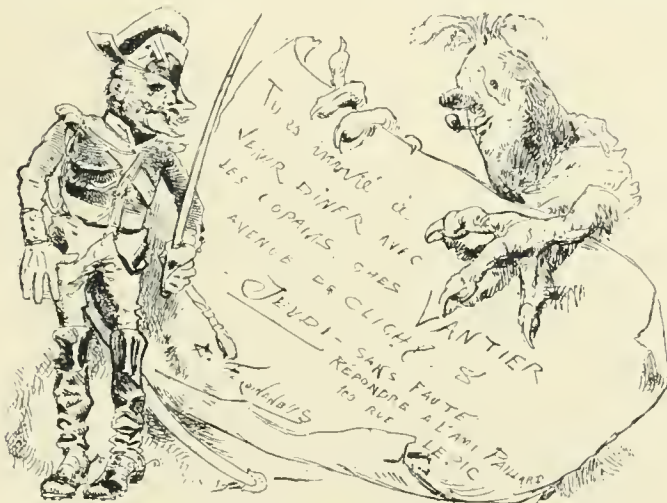 Tu es invité à
VENIR DÎNER AVEC
LES COPAINS CHES LANTIER
AVENUE DE CLICHY. 8
JEUDI - SANS FAUTE
RÉPONDRE A L'AMI PAILLARD
RUE LE